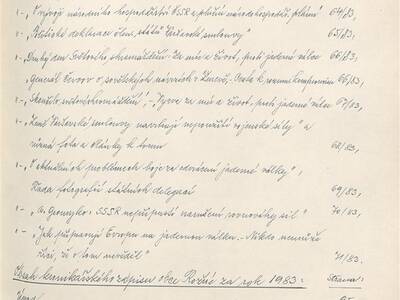 "- „O vývoji národního hospodářství SSR a plnění národohospodář. plánu" 64/83,
"- „Politická deklarace člen. států Varšavské smlouvy" 65/83,
"- „Druhý den Světového shromáždění: Za mír a život, proti jaderné válce 66/83,
„Generál Červov o sovětských návrzích v Ženevě: Cesta k rozumn. kompromisům 66/83,
"- „Skončilo světové shromáždění", - Výzva za mír a život, proti jaderné válce 67/83,
"- „Země Varšavské smlouvy navrhují nepoužití vojenské síly" a
různá fota a články k tomu 68/83,
"- „O aktuálních problémech boje za odvrácení jaderné války",
Řada fotografií, státních delegací 69/83,
"- „A. Gromyko: SSSR nepřipustí narušení rovnováhy sil" 70/83,
"- „Jak připravují Evropu na jadernou válku. - Nikdo nemůže
říci, že o tom nevěděl" 71/83.
Obsah kronikářského zápisu obce Rožné za rok 1983: Strana:
Úvod 95